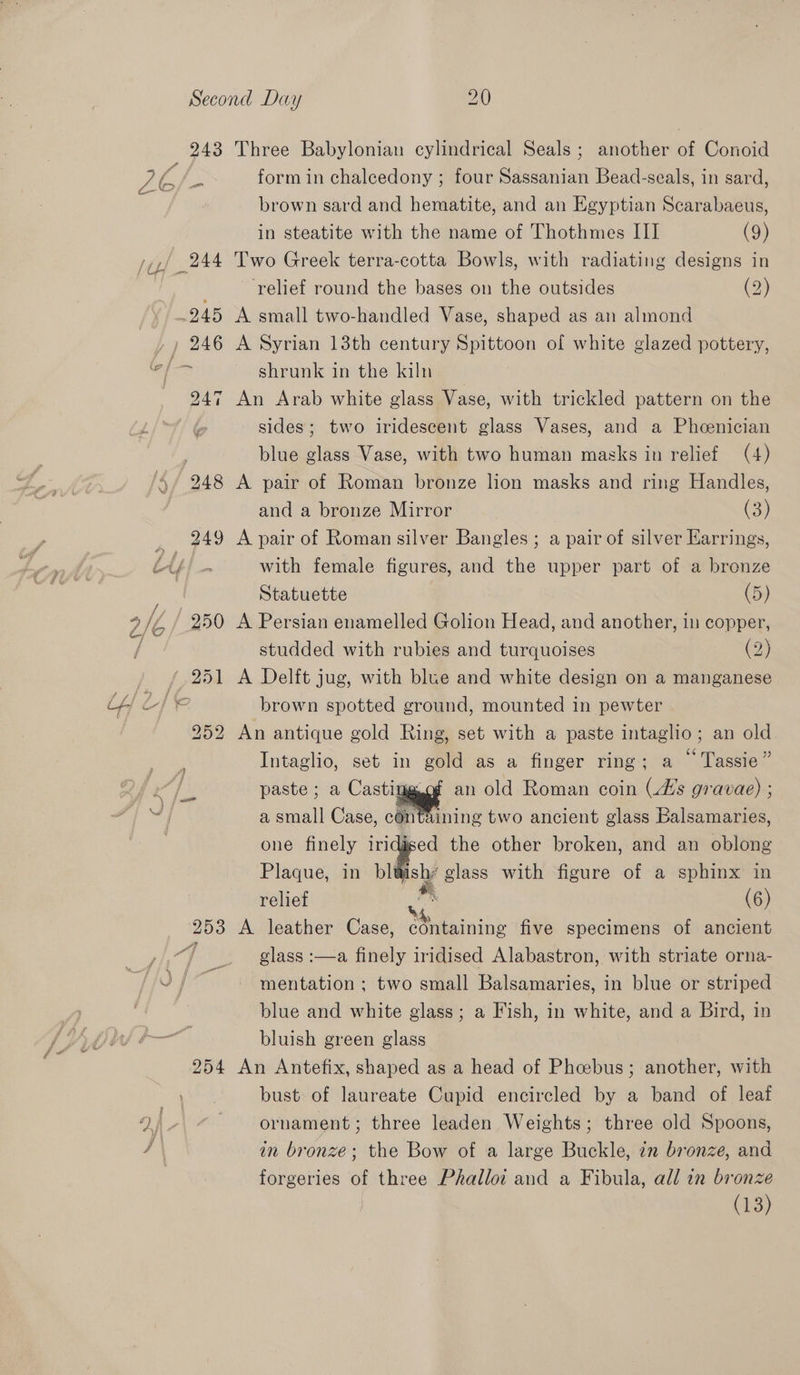 Second Day 20
243 Three Babylonian cylindrical Seals; another of Conoid
26/- form in chalcedony; four Sassanian Bead-seals, in sard,
brown sard and hematite, and an Egyptian Scarabaeus,
in steatite with the name of Thothmes III (9)
244 Two Greek terra-cotta Bowls, with radiating designs in
relief round the bases on the outsides (2)
245 A small two-handled Vase, shaped as an almond
246 A Syrian 13th century Spittoon of white glazed pottery,
shrunk in the kiln
247 An Arab white glass Vase, with trickled pattern on the
sides; two iridescent glass Vases, and a Phœnician
blue glass Vase, with two human masks in relief (4)
248 A pair of Roman bronze lion masks and ring Handles,
and a bronze Mirror (3)
249 A pair of Roman silver Bangles; a pair of silver Earrings,
with female figures, and the upper part of a bronze
Statuette (5)
2/6 250 A Persian enamelled Golion Head, and another, in copper,
studded with rubies and turquoises (2)
251 A Delft jug, with blue and white design on a manganese
brown spotted ground, mounted in pewter
252 An antique gold Ring, set with a paste intaglio; an old
Intaglio, set in gold as a finger ring; a “Tassie”
paste; a Casting of an old Roman coin (Æs gravae);
a small Case, containing two ancient glass Balsamaries,
one finely iridised the other broken, and an oblong
Plaque, in bluish glass with figure of a sphinx in
relief (6)
253 A leather Case, containing five specimens of ancient
glass:—a finely iridised Alabastron, with striate orna-
mentation; two small Balsamaries, in blue or striped
blue and white glass; a Fish, in white, and a Bird, in
bluish green glass
254 An Antefix, shaped as a head of Phœbus; another, with
bust of laureate Cupid encircled by a band of leaf
ornament; three leaden Weights; three old Spoons,
in bronze; the Bow of a large Buckle, in bronze, and
forgeries of three Phalloi and a Fibula, all in bronze
(13)